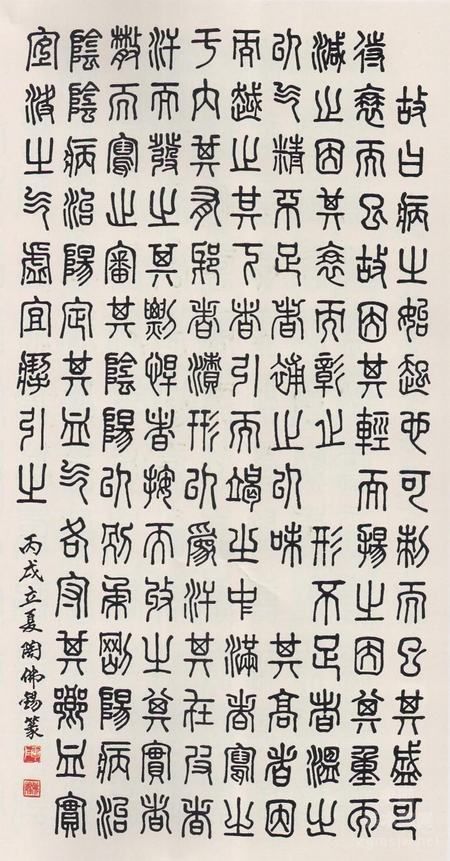 故曰病之始起也可刺而已其盛可
待衰而已故因其輕而揚之因其重而
減之因其衰而彰之形不足者溫之
以气精不足者補之以味其高者因
而越之其下者引而竭之中滿者寫之
于內其有邪者漬形以為汗其在皮者
汗而發之其剽悍者按而收之其實者
散而寫之審其陰陽以別柔剛陽病治
陰陰病治陽定其血气各守其鄉血實
宜決之气虛宜掣引之
丙戌立夏陶佛錫篆